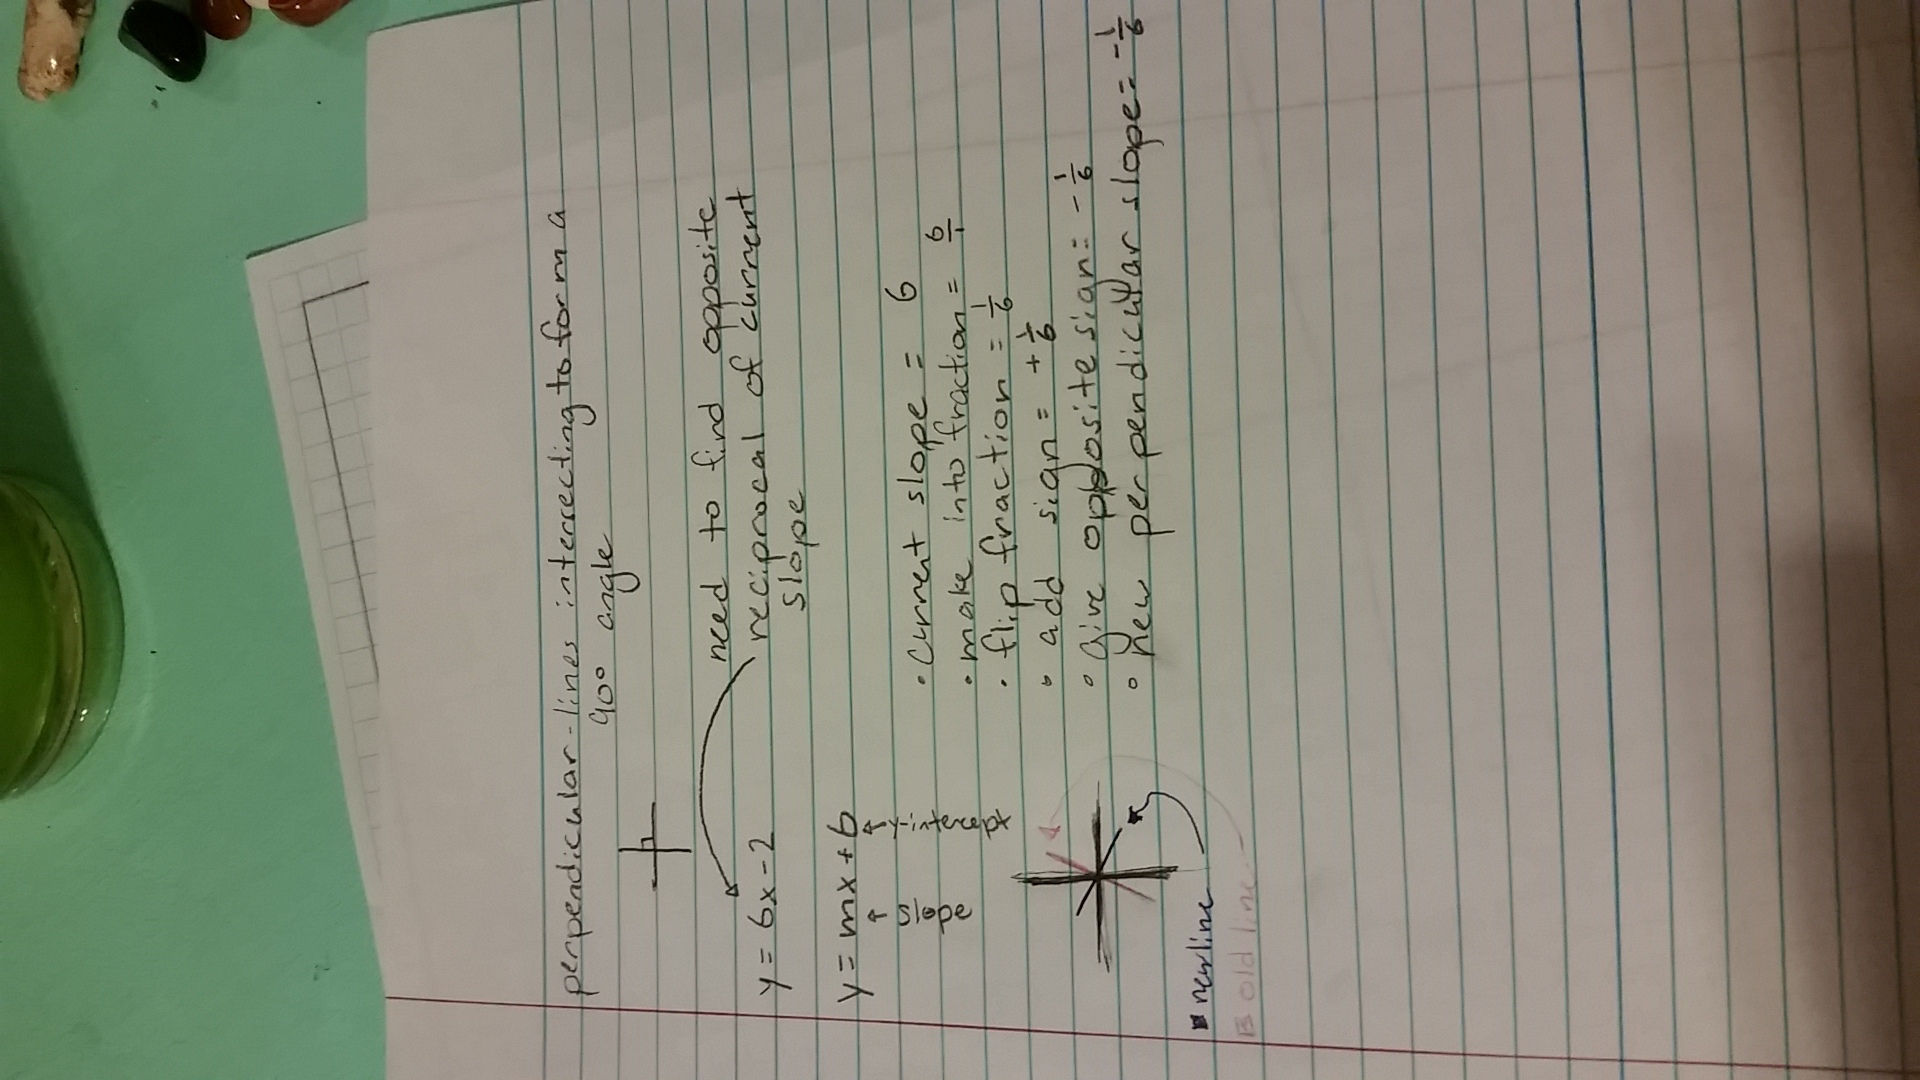 perpendicular - lines intersecting to form a
90° angle
need to find opposite
reciprocal of current
slope
y = 6x - 2
y = mx + b
↑ slope
↑ y-intercept
• current slope = 6
• make into fraction = 6/1
• flip fraction = 1/6
• add sign = + 1/6
• give opposite sign = - 1/6
• new perpendicular slope = - 1/6
new line
old line